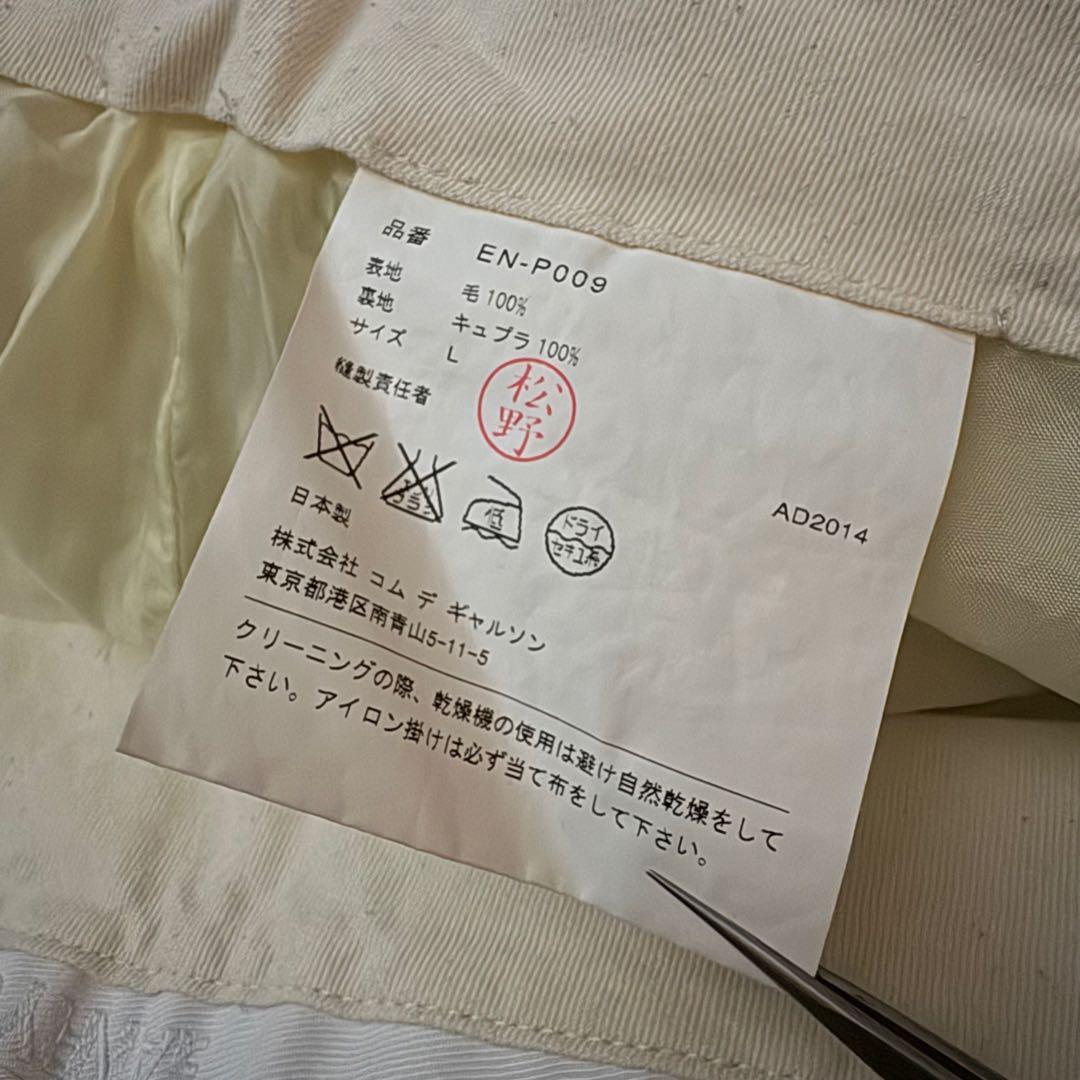 品番 EN-P009
表地 毛100%
裏地 キュプラ100%
サイズ L
縫製責任者 松野
エンソ
サラシ
低
ドライ
セキユ系
AD2014
日本製
株式会社 コム デ ギャルソン
東京都港区南青山5-11-5
クリーニングの際、乾燥機の使用は避け自然乾燥をして
下さい。アイロン掛けは必ず当て布をして下さい。